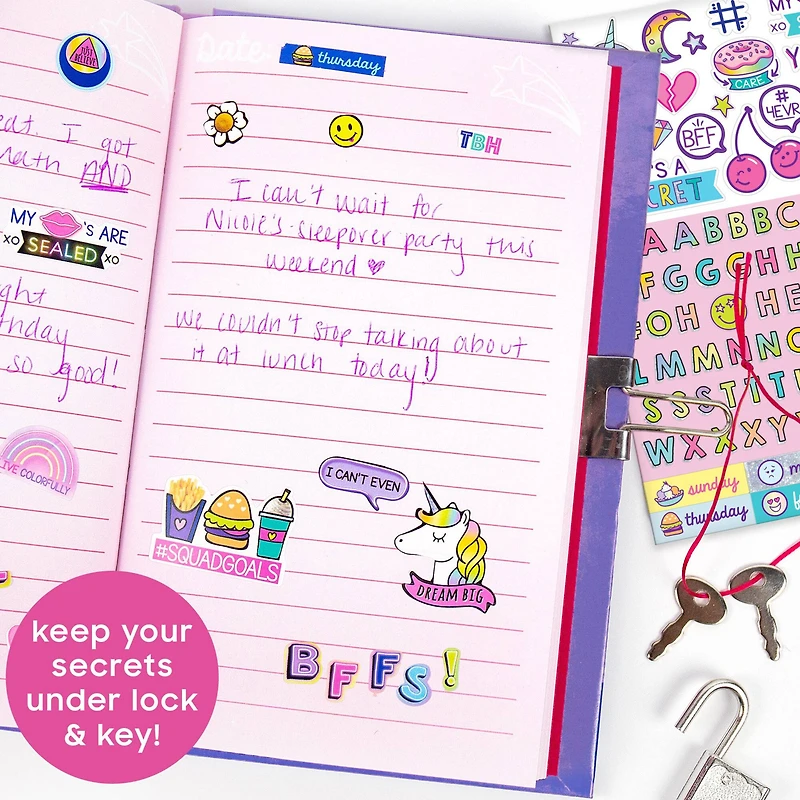 JUST BELIEVE
eat. I got
math AND
MY 'S ARE
XO SEALED XO
ght
thday
so good!
LIVE COLORFULLY
Date:
thursday
TBH
I can't wait for
Nicole's sleepover party this
weekend
We couldn't stop talking about
it at lunch today!
#SQUADGOALS
I CAN'T EVEN
DREAM BIG
BFFS!
keep your
secrets
under lock
& key!
#
MY
XO
CARE
BFF
#
4EVR
'S A
SECRET
A A B B B C
F G G G H H
O H H E
L M M N N O
S S S T T T
W X X X Y
sunday
thursday